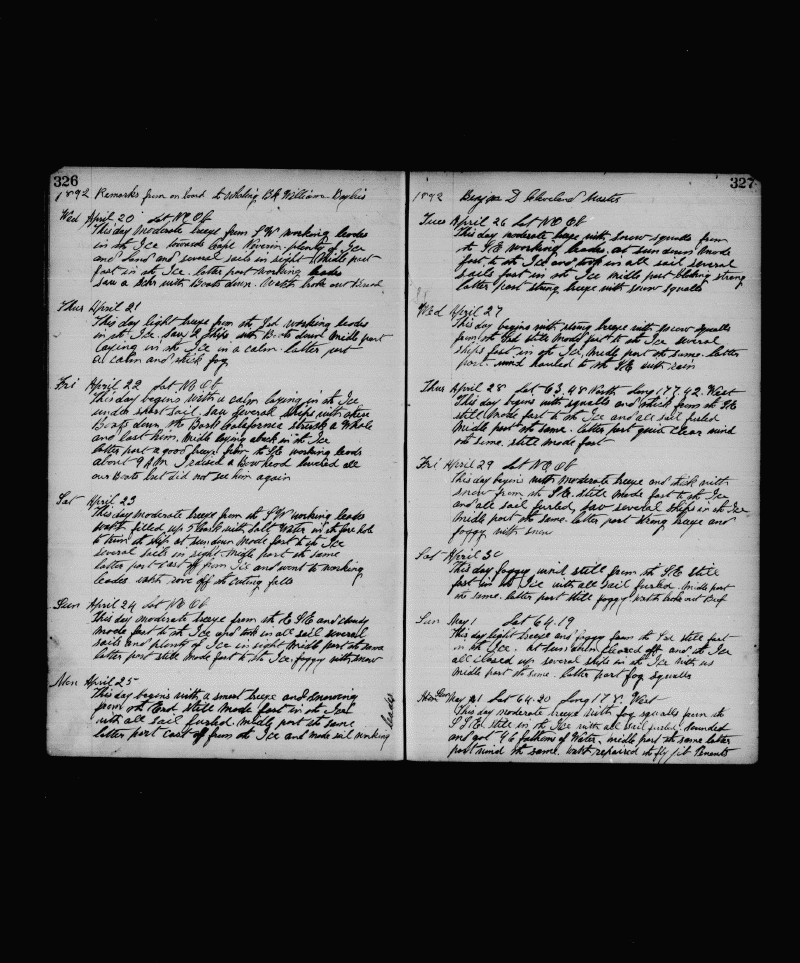 326
1892 Remarks from on board Whaling Bk William Baylies
Wed April 20 Lat No Ob
This day moderate breeze from SW working leads
in the Ice towards Cape Navarin. plenty of Ice
and land and several sails in sight. Middle part
fast in the Ice. latter part working leads
saw a Bk with Boats down. Watch broke out Bread
Thur April 21
This day light breeze from the Yd working leads
in the Ice. Saw 2 Ships with Boats down Middle part
laying in the Ice in a calm. latter part
a calm and thick fog
Fri April 22 Lat No Ob
This day begins with a calm laying in the Ice
under short sail. Saw several Ships with their
Boats down the Bark California struck a Whale
and lost him. Middle laying aback in the Ice
latter part a good breeze from the SE working leads
about 9 AM I raised a Bowhead lowered all
our Boats but did not see him again
Sat April 23
This day moderate breeze from the SW working leads
watch filled up 5 Casks with Salt Water in the fore hole
to trim the ship at sundown Made fast to the Ice
several sails in sight Middle part the same
latter part cast off from Ice and went to working
leades watch rove off the cutting falls
Sun April 24 Lat No Ob
This day moderate breeze from the E SE and cloudy
made fast to the Ice and took in all sail several
sails and plenty of Ice in sight Middle part the same
latter part still made fast to the Ice. foggy with snow
Mon April 25
This day begins with a smart breeze and snowing
from the East still Made fast in the Ice
with all sail furled. Middle part the same
latter part cast off from the Ice and made sail working
leades
327
1892 Benjn D Cleveland Master
Tues April 26 Lat No Ob
This day moderate breeze with snow squalls from
the SE working leades. at sun down made
fast to the Ice and took in all sail several
sails fast in the Ice Middle part blowing strong
latter part strong breeze with snow squalls
Wed April 27
This day begins with strong breeze with snow squalls
from the still Made fast to the Ice several
ships fast in the Ice, Middle part the same. latter
part. wind hauled to the SE with rain
Thur April 28 Lat 63,48 North Long 177.42. West
This day begins with squalls and thick from the SE
still Made fast to the Ice and all sail furled
Middle part the same. latter part quite clear wind
the same. still made fast
Fri April 29 Lat No Ob
This day begins with moderate breeze and thick with
snow from the SE. still Made fast to the Ice
and all sail furled, saw several ships in the Ice
Middle part the same. latter part strong breeze and
foggy with snow
Sat April 30
This day foggy wind still from the SE still
fast in the Ice with all sail furled. Middle part
the same. latter part still foggy watch broke out Beef
Sun May 1 Lat 64.19
This day light breeze and foggy from the still fast
in the Ice. at cleared off and the Ice
all closed up several ships in the Ice with us
Middle part the same. latter part fog squalls
Mon May Lat 64.20 Long 178. West
This day moderate breeze with fog squalls from the
S SE. still in the Ice with all sail furled. Sounded
and got 46 fathoms of Water. Middle part the same latter
part wind the same. watch repaired the fly jib Penents